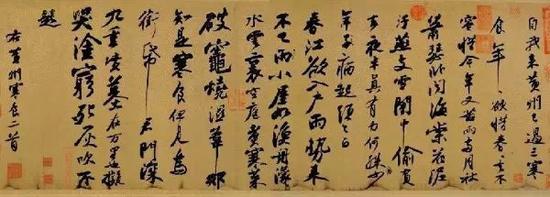 自我來黃州已過三寒
食年〻欲惜春春去不
容惜今年又苦雨兩月秋
蕭瑟卧聞海棠花泥
汙燕支雪闇中偷負
去夜半真有力何殊病少
年子病起須已白
春江欲入戶雨勢來
不已雨小屋如漁舟濛〻
水雲裏空庖煮寒菜
破竈燒濕葦那
知是寒食但見烏
銜帋君門深
九重墳墓在万里也擬
哭塗窮死灰吹不
起
右黃州寒食二首